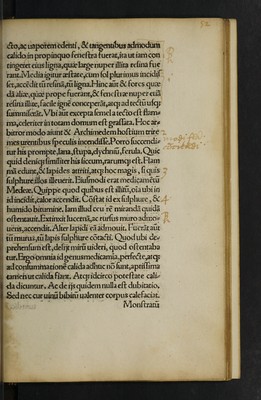 cto, ac vaporem edenti, & tangentibus admodum
calido in propinquo fenestra fuerat, ita ut iam con
tingeret eius ligna, quæ large nuper illita resina fue
rant. Media igitur æstate, cum sol plurimus incidis
set, accēdit tū resinā, tū ligna. Hinc aūt & fores quæ
dā aliæ, quæ prope fuerant, & fenestræ nuper etiā
resina illitæ, facile ignē conceperūt, atqȝ ad tectū usqȝ
summiserūt. Vbi aūt excepta semel a tecto est flam-
ma, celeriter in totam domum est grassata. Hoc ar-
bitror modo aiunt & Archimedem hostium trire
mes urentibus speculis incendisse. Porro succendi-
tur his prompte, lana, stupa, elychniū, ferula, Quic
quid deniqȝ similiter his siccum, rarumqȝ est. Flam
mā edunt, & lapides attriti, atqȝ hoc magis, si quis
sulphur illos illeuerit. Eiusmodi erat medicamētū
Medeæ. Quippe quod quibus est illitū, oīa ubi in
id incidit, calor accendit. Cōstat id ex sulphure, &
humido bitumine. Iam illud ceu rē mirandā quidā
ostentauit. Extinxit lucernā, ac rursus muro admo
uens, accendit. Alter lapidi eā admouit. Fuerāt aūt
tū murus, tū lapis sulphure cōtacti. Quod ubi de-
prehensum est, desijt mirū uideri, quod ostentaba
tur. Ergo omnia id genus medicamīa, perfecte, atqȝ
ad consummationē calida adhuc nō sunt, aptissima
tamen ut calida fiant. Atqȝ idcirco potestate cali-
da dicuntur. Ac de ijs quidem nulla est dubitatio.
Sed nec cur uinū bibitū ualenter corpus calefaciat.
Monstratū